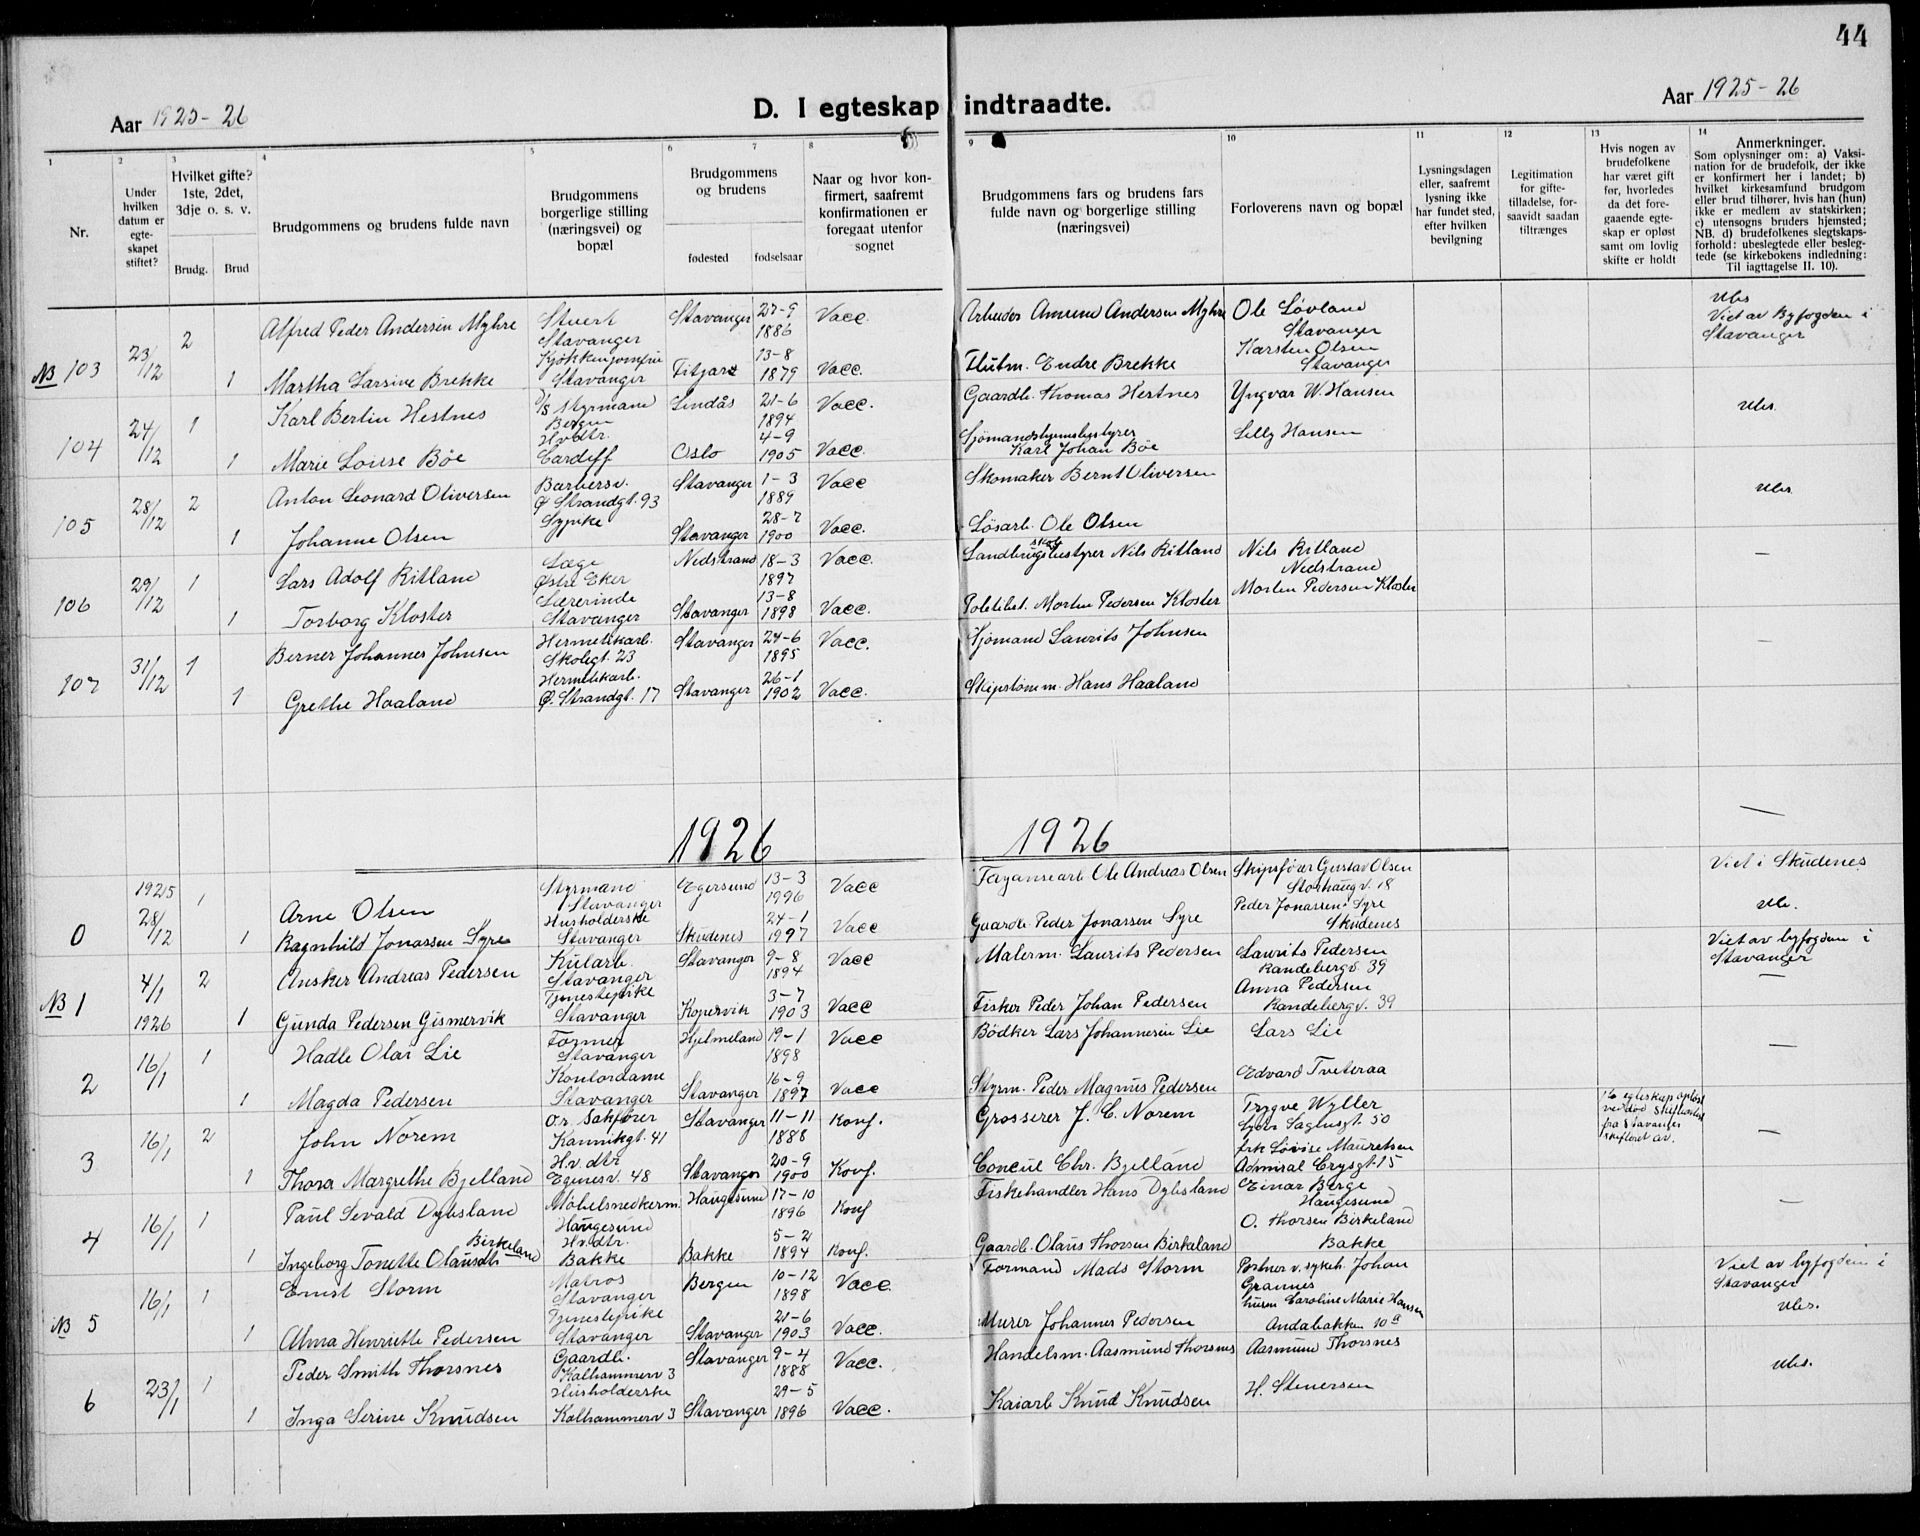 44
Aar 1925-26
D. I egteskap indtraadte.
Aar 1925-26
1 2 3 4 5 6 7 8 9 10 11 12 13 14
Nr.
Under hvilken datum er egteskapet stiftet?
Hvilket gifte? 1ste, 2det, 3dje o. s. v.
Brudg. Brud
Brudgommens og brudens fulde navn
Brudgommens borgerlige stilling (næringsvei) og bopæl
Brudgommens og brudens
fødested fødselsaar
Naar og hvor konfirmert, saafremt konfirmationen er foregaat utenfor sognet
Brudgommens fars og brudens fars fulde navn og borgerlige stilling (næringsvei)
Forloverens navn og bopæl
Lysningsdagen eller, saafremt lysning ikke har fundet sted, efter hvilken bevilgning
Legitimation for giftetilladelse, forsaavidt saadan tiltrænges
Hvis nogen av brudefolkene har været gift før, hvorledes da det foregaaende egteskap er opløst samt om lovlig skifte er holdt
Anmerkninger.
Som oplysninger om: a) Vaksination for de brudefolk, der ikke er konfirmert her i landet; b) hvilket kirkesamfund brudgom eller brud tilhører, hvis han (hun) ikke er medlem av statskirken; c) utensogns bruders hjemsted; NB. d) brudefolkenes slegtskapsforhold: ubeslegtede eller beslegtede (se kirkebokens indledning: Til iagttagelse II. 10).
NB 103 23/12 2 Alfred Peder Andersen Myhre Stuert Stavanger Stavanger 27-9 1886 Vacc. Arbeider Amund Andersen Myhre Ole Løvland Stavanger Ubs Viet av Byfogden i Stavanger
1 Martha Larsine Brekke Kjøkkenjomfru Stavanger Fitjar 13-8 1879 Vacc. Endre Brekke Karsten Olsen Stavanger
104 24/12 1 Karl Bertin Hestnes D/S Styrmand Bergen Lindås 21-6 1894 Vacc. Gaardb. Thomas Hestnes Yngvar W. Hansen Ubs.
1 Marie Lovise Bøe Hvdtr. Cardiff Oslo 4-9 1905 Vacc. Karl Johan Bøe Lilly Hansen
105 28/12 2 Anton Leonard Oliversen Barbersv. Ø Strandgt. 93 Stavanger 1-3 1889 Vacc Skomaker Bernt Oliversen Ubs
1 Johanne Olsen Sypike Stavanger 28-7 1900 Vacc. Løsarb. Ole Olsen
106 29/12 1 Lars Adolf Ritland Læge Østre Eker Nedstrand 18-3 1897 Vacc. Landbrugsskolebestyrer Nils Ritland Nils Ritland Nedstrand —
1 Torborg Kloster Lærerinde Stavanger Stavanger 13-8 1898 Vacc. Politibet. Morten Pedersen Kloster Morten Pedersen Kloster
107 31/12 1 Berner Johannes Johnsen Hermetikarb. Skolegt. 23 Stavanger 24-6 1895 Vacc. Sjømand Laurits Johnsen —
1 Grethe Haaland Hermetikarb. Ø. Strandgt. 17 Stavanger 26-1 1902 Vacc. Skipstømm. Hans Haaland
—
1926 1926
0 1925 28/12 1 Arne Olsen Styrmand Stavanger Egersund 13-3 1996 Vacc Fayansearb Ole Andreas Olsen Skipsfører Gustav Olsen Storhaugv. 18 Viet i Skudenes
1 Ragnhild Jonassen Syre Husholderske Stavanger Skudenes 24-1 1997 Vacc Gaardb. Peder Jonassen Syre Peder Jonassen Syre Skudenes Ub.
NB 1 4/1 1926 2 Ansker Andreas Pedersen Kularb. Stavanger Stavanger 9-8 1894 Vacc Malerm. Laurits Pedersen Laurits Pedersen Randebergv. 39 Viet av byfogden i Stavanger —
1 Gunda Pedersen Gismervik Tjenestepike Stavanger Kopervik 3-7 1903 Vacc Fisker Peder Johan Pedersen Anna Pedersen Randebergv. 39
2 16/1 1 Hadle Olai Lie Former Stavanger Hjelmeland 19-1 1898 Vacc Bødker Lars Johannesen Lie Lars Lie —
1 Magda Pedersen Kontordame Stavanger Stavanger 16-9 1897 Vacc Styrm. Peder Magnus Pedersen Edvard Tveteraa
3 16/1 2 John Norem O.r. Sakfører Kannikgt. 41 Stavanger 11-11 1888 Konf. Grosserer J. C. Norem Trygve Wyller Sagbugt. 50 1ste egteskap opløst ved død fra Stavanger skifteret av. —
1 Thora Margrethe Bjelland Hv. dtr Egenesv. 48 Stavanger 20-9 1900 Konf. Concul Chr. Bjelland frk Lovise Mauretsen Admiral Crysgt. 15
4 16/1 1 Paul Sevald Dybsland Møbelsnedkerm. Haugesund Haugesund 17-10 1896 Konf Fiskehandler Hans Dybsland Einar Berge Haugesund —
1 Ingeborg Tonette Olausdtr Birkeland Hvdtr. Bakke Bakke 5-2 1894 Konf. Gaardb. Olaus Thorsen Birkeland O. Thorsen Birkeland Bakke
NB 5 16/1 1 Ernst Storm Matros Stavanger Bergen 10-12 1898 Vacc. Formand Mads Storm Portner v. sykeh. Johan Grannes Viet av byfogden i Stavanger Ubs.
1 Alma Henriette Pedersen Tjenestepike Stavanger Stavanger 21-6 1903 Vacc. Murer Johannes Pedersen husm Caroline Marie Hansen Andabakken 10a
6 23/1 1 Peder Smith Thorsnes Gaardb. Kalhammerv 3 Stavanger 9-4 1888 Vacc. Handelsm. Aasmund Thorsnes Aasmund Thorsnes Ubs.
1 Inga Serine Knudsen Husholderske Kalhammerv 3 Stavanger 29-5 1896 Vacc. Kaiarb Knud Knudsen H. Stenersen